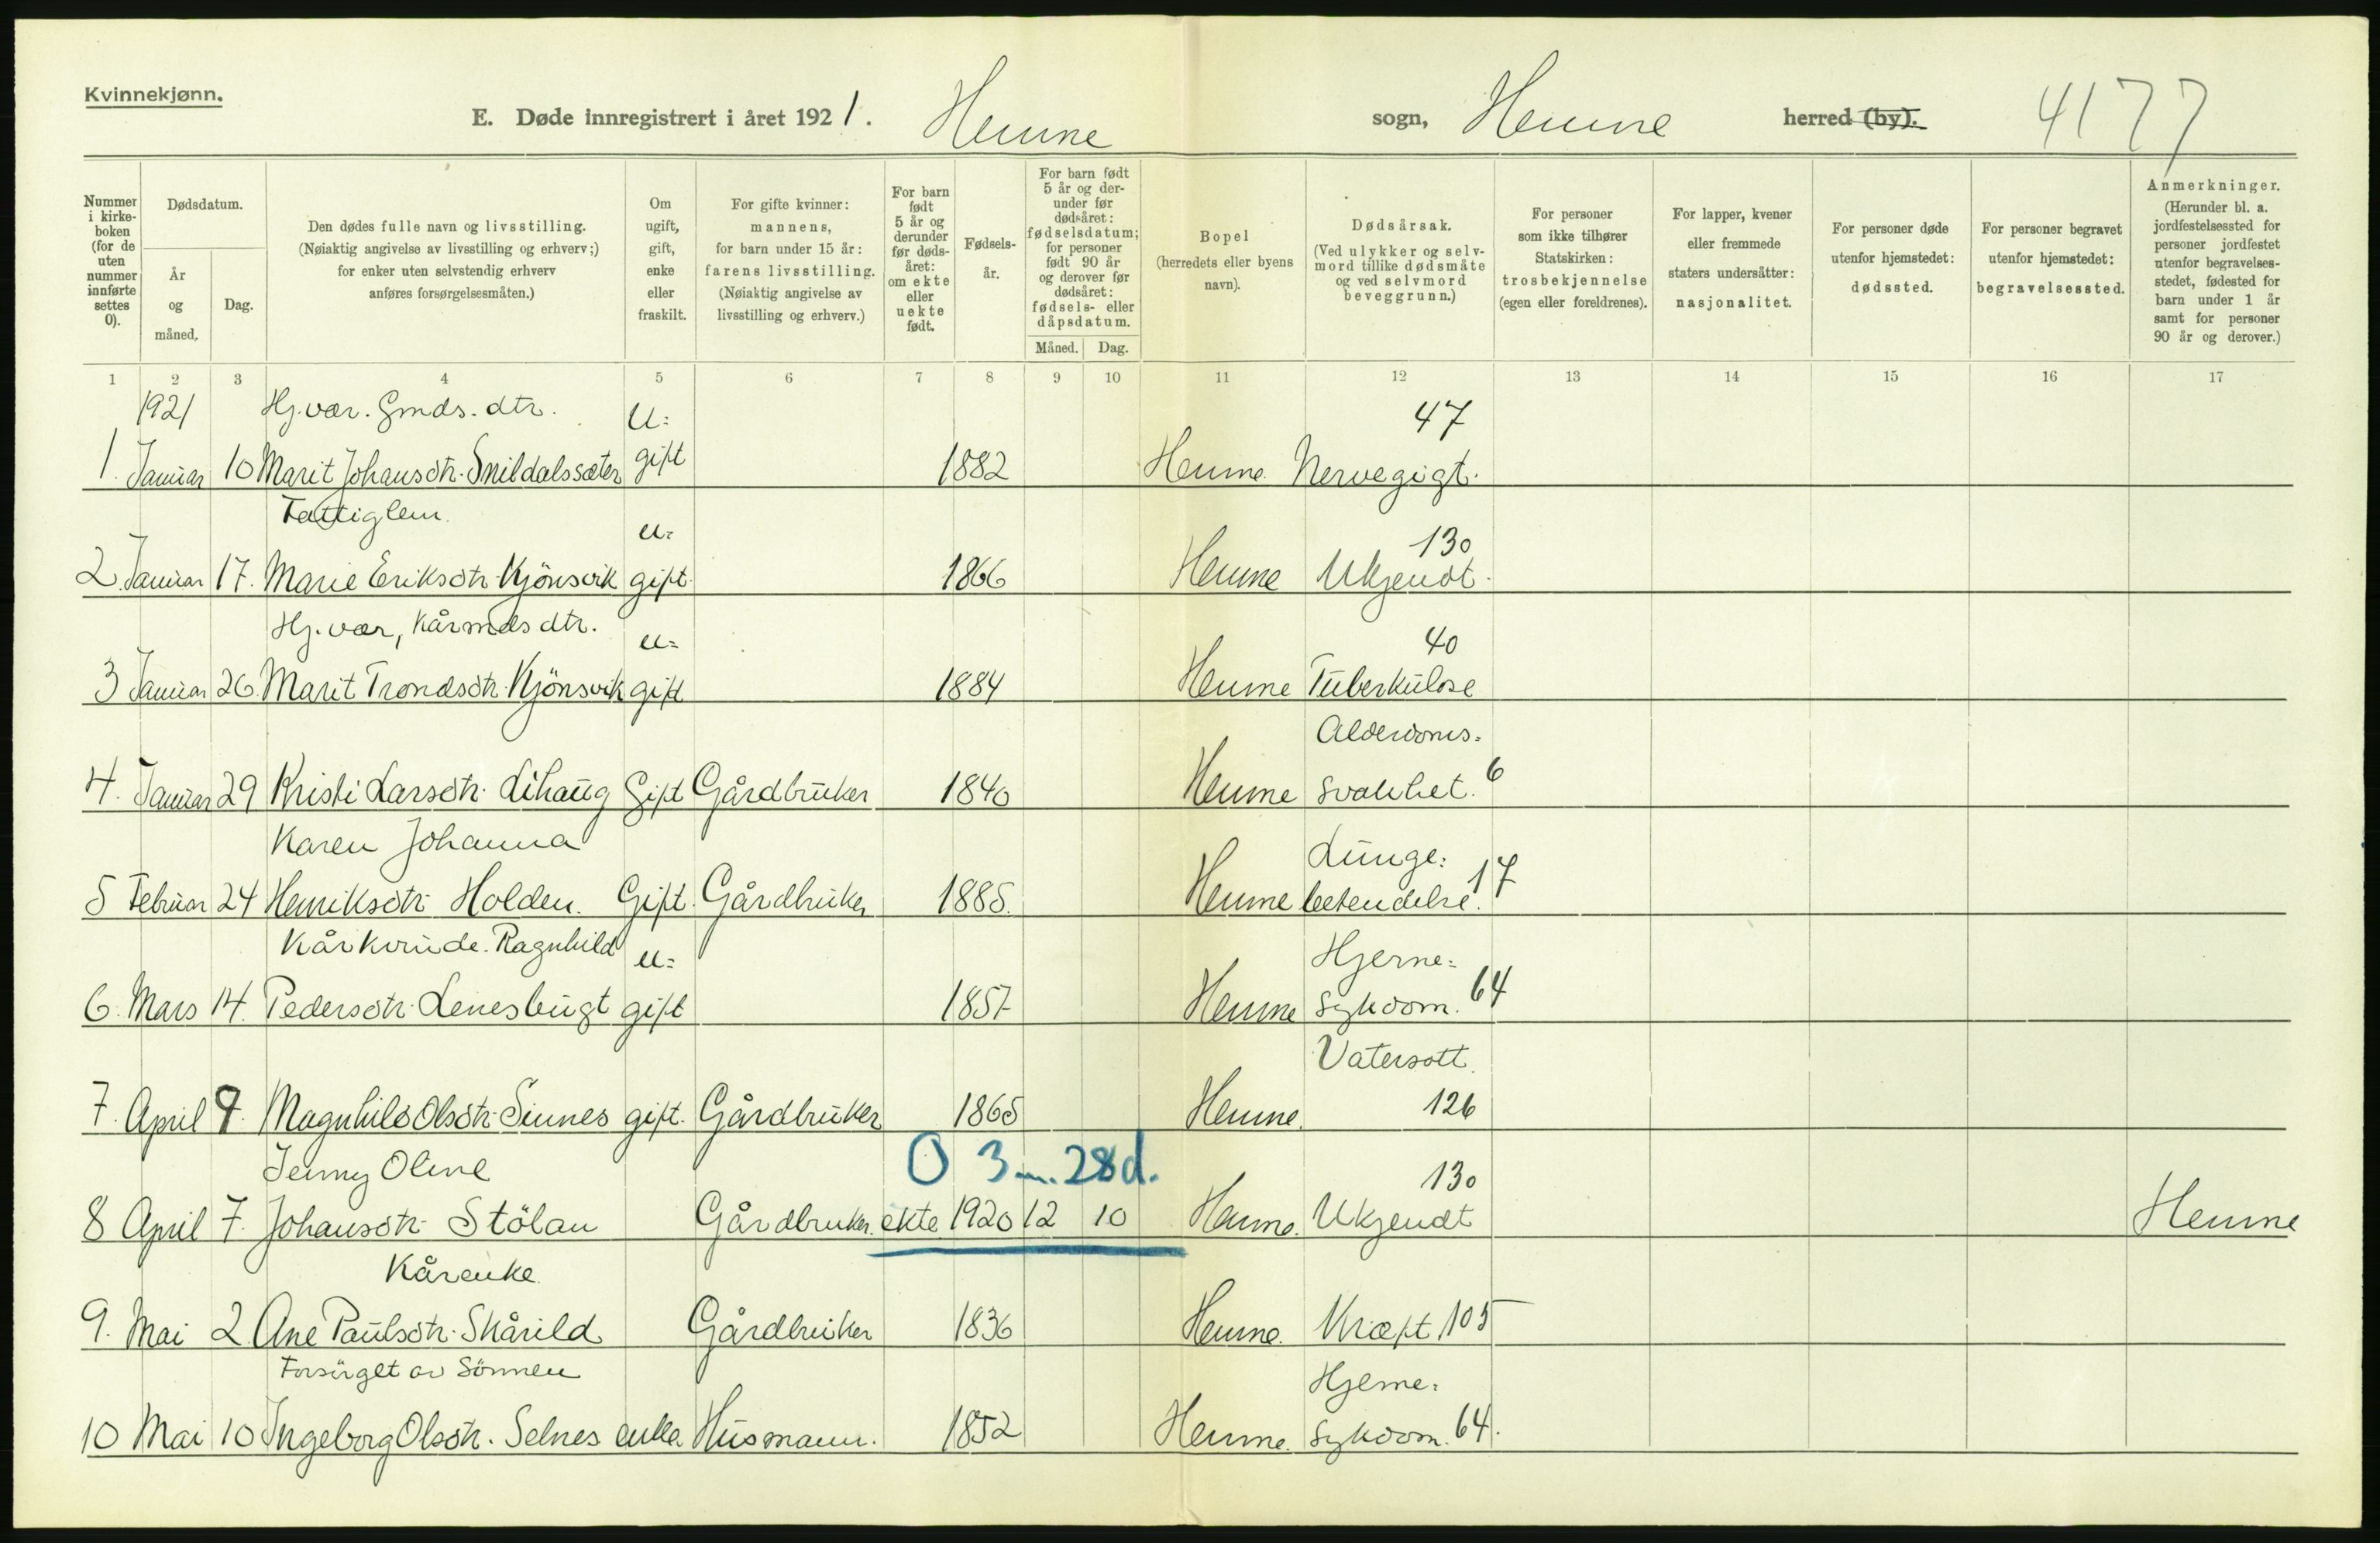 Kvinnekjønn.
E. Døde innregistrert i året 1921. Hemne sogn, Hemne herred (by). 4177
Nummer i kirke-boken (for de uten nummer innførte settes 0).
Dødsdatum.
År og måned.
Dag.
Den dødes fulle navn og livsstilling.
(Nøiaktig angivelse av livsstilling og erhverv;)
for enker uten selvstendig erhverv
anføres forsørgelsesmåten.)
Om ugift, gift, enke eller fraskilt.
For gifte kvinner:
mannens,
for barn under 15 år:
farens livsstilling.
(Nøiaktig angivelse av
livsstilling og erhverv.)
For barn født 5 år og derunder før døds-året: om ekte eller uekte født.
Fødsels-år.
For barn født 5 år og der-under før dødsåret: fødselsdatum; for personer født 90 år og derover før dødsåret: fødsels- eller dåpsdatum.
Måned. Dag.
Bopel
(herredets eller byens
navn).
Dødsårsak.
(Ved ulykker og selv-
mord tillike dødsmåte
og ved selvmord
beveggrunn.)
For personer
som ikke tilhører
Statskirken:
trosbekjennelse
(egen eller foreldrenes).
For lapper, kvener
eller fremmede
staters undersåtter:
nasjonalitet.
For personer døde
utenfor hjemstedet:
dødssted.
For personer begravet
utenfor hjemstedet:
begravelsessted.
Anmerkninger.
(Herunder bl. a.
jordfestelsessted for
personer jordfestet
utenfor begravelses-
stedet, fødested for
barn under 1 år
samt for personer
90 år og derover.)
1 2 3 4 5 6 7 8 9 10 11 12 13 14 15 16 17
1921 Hj.vær. Gmds. dtr. U= 47
1. Januar 10 Marit Johansdtr. Snildalssæter gift 1882 Hemne. Nervegigt.
Fattiglem. u= 130
2. Januar 17. Marie Eriksdtr. Kjönsvik gift. 1866 Hemne Ukjendt.
Hj.vær, Kårmds dtr. u= 40
3 Januar 26. Marit Trondsdtr. Kjönsvik gift 1884 Hemne Tuberkulose
Alderdoms=
4. Januar 29 Kristi Larsdtr. Lihaug Gift Gårdbruker 1840 Hemne svakhet. 6
Karen Johanna Lunge=
5 Februar 24 Henriksdtr. Holden. Gift. Gårdbruker 1885. Hemne betendelse. 17
Kårkvinde. Ragnhild u= Hjerne=
6. Mars 14. Pedersdtr. Lenesbugt gift 1857 Hemne sykdom. 64
Vatersott.
7. April 7. Magnhild Olsdtr. Sinnes gift. Gårdbruker 1865 Hemne. 126
Jenny Oline 0 3 m. 28 d. 130
8 April 7. Johansdtr. Stölan Gårdbruker. ekte 1920 12 10 Hemne. Ukjendt Hemne
Kårenke.
9. Mai 2. Ane Paulsdtr. Skårild Gårdbruker 1836 Hemne. Kræft 105
Forsörget av Sönnen Hjerne=
10 Mai 10 Ingeborg Olsdtr. Selnes enke Husmann. 1852 Hemne. sykdom. 64.